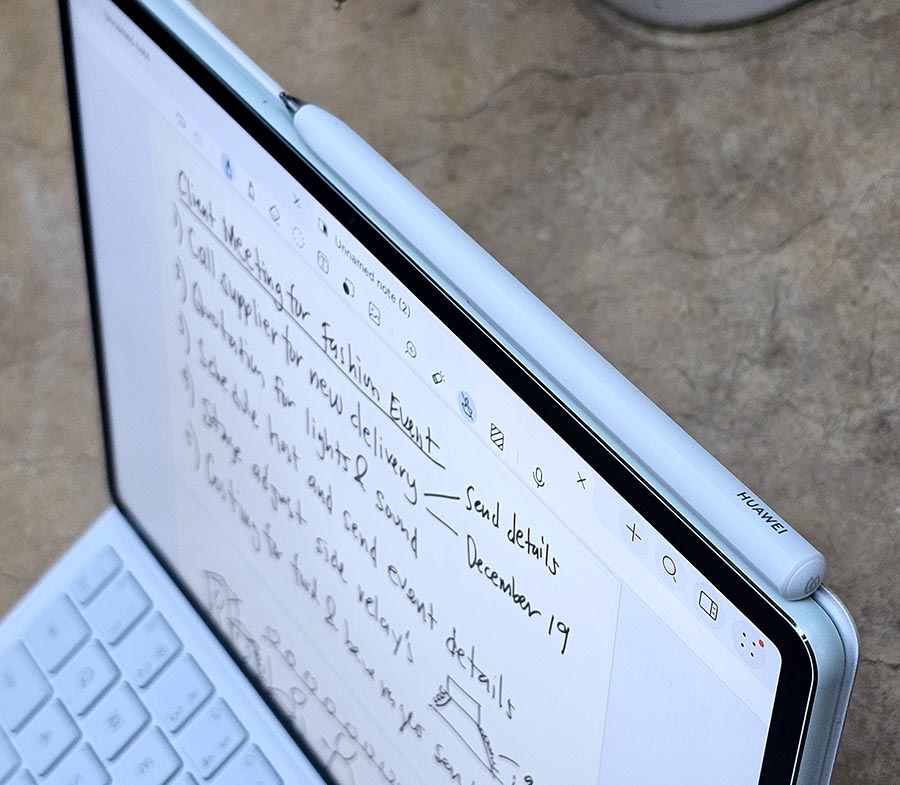 Unnamed note (2)
Client Meeting for Fashion Event
1) Call supplier for new delivery
Send details
December 19
2) Quotation for lights & sound
3) Schedule host and send event details
4) adjust side relay's
5) Costing for food &
HUAWEI